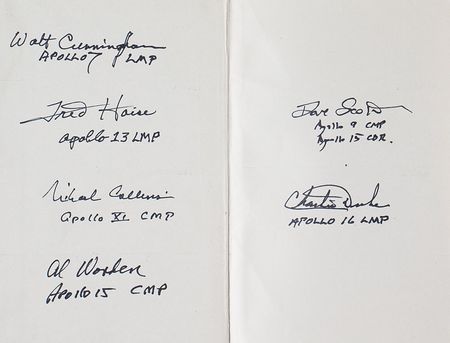 Walt Cunningham
APOLLO 7 LMP
Fred Haise
Apollo 13 LMP
Michael Collins
Apollo XI CMP
Al Worden
APOLLO 15 CMP
Dave Scott
Apollo 9 CMP
Apollo 15 CDR.
Charlie Duke
APOLLO 16 LMP